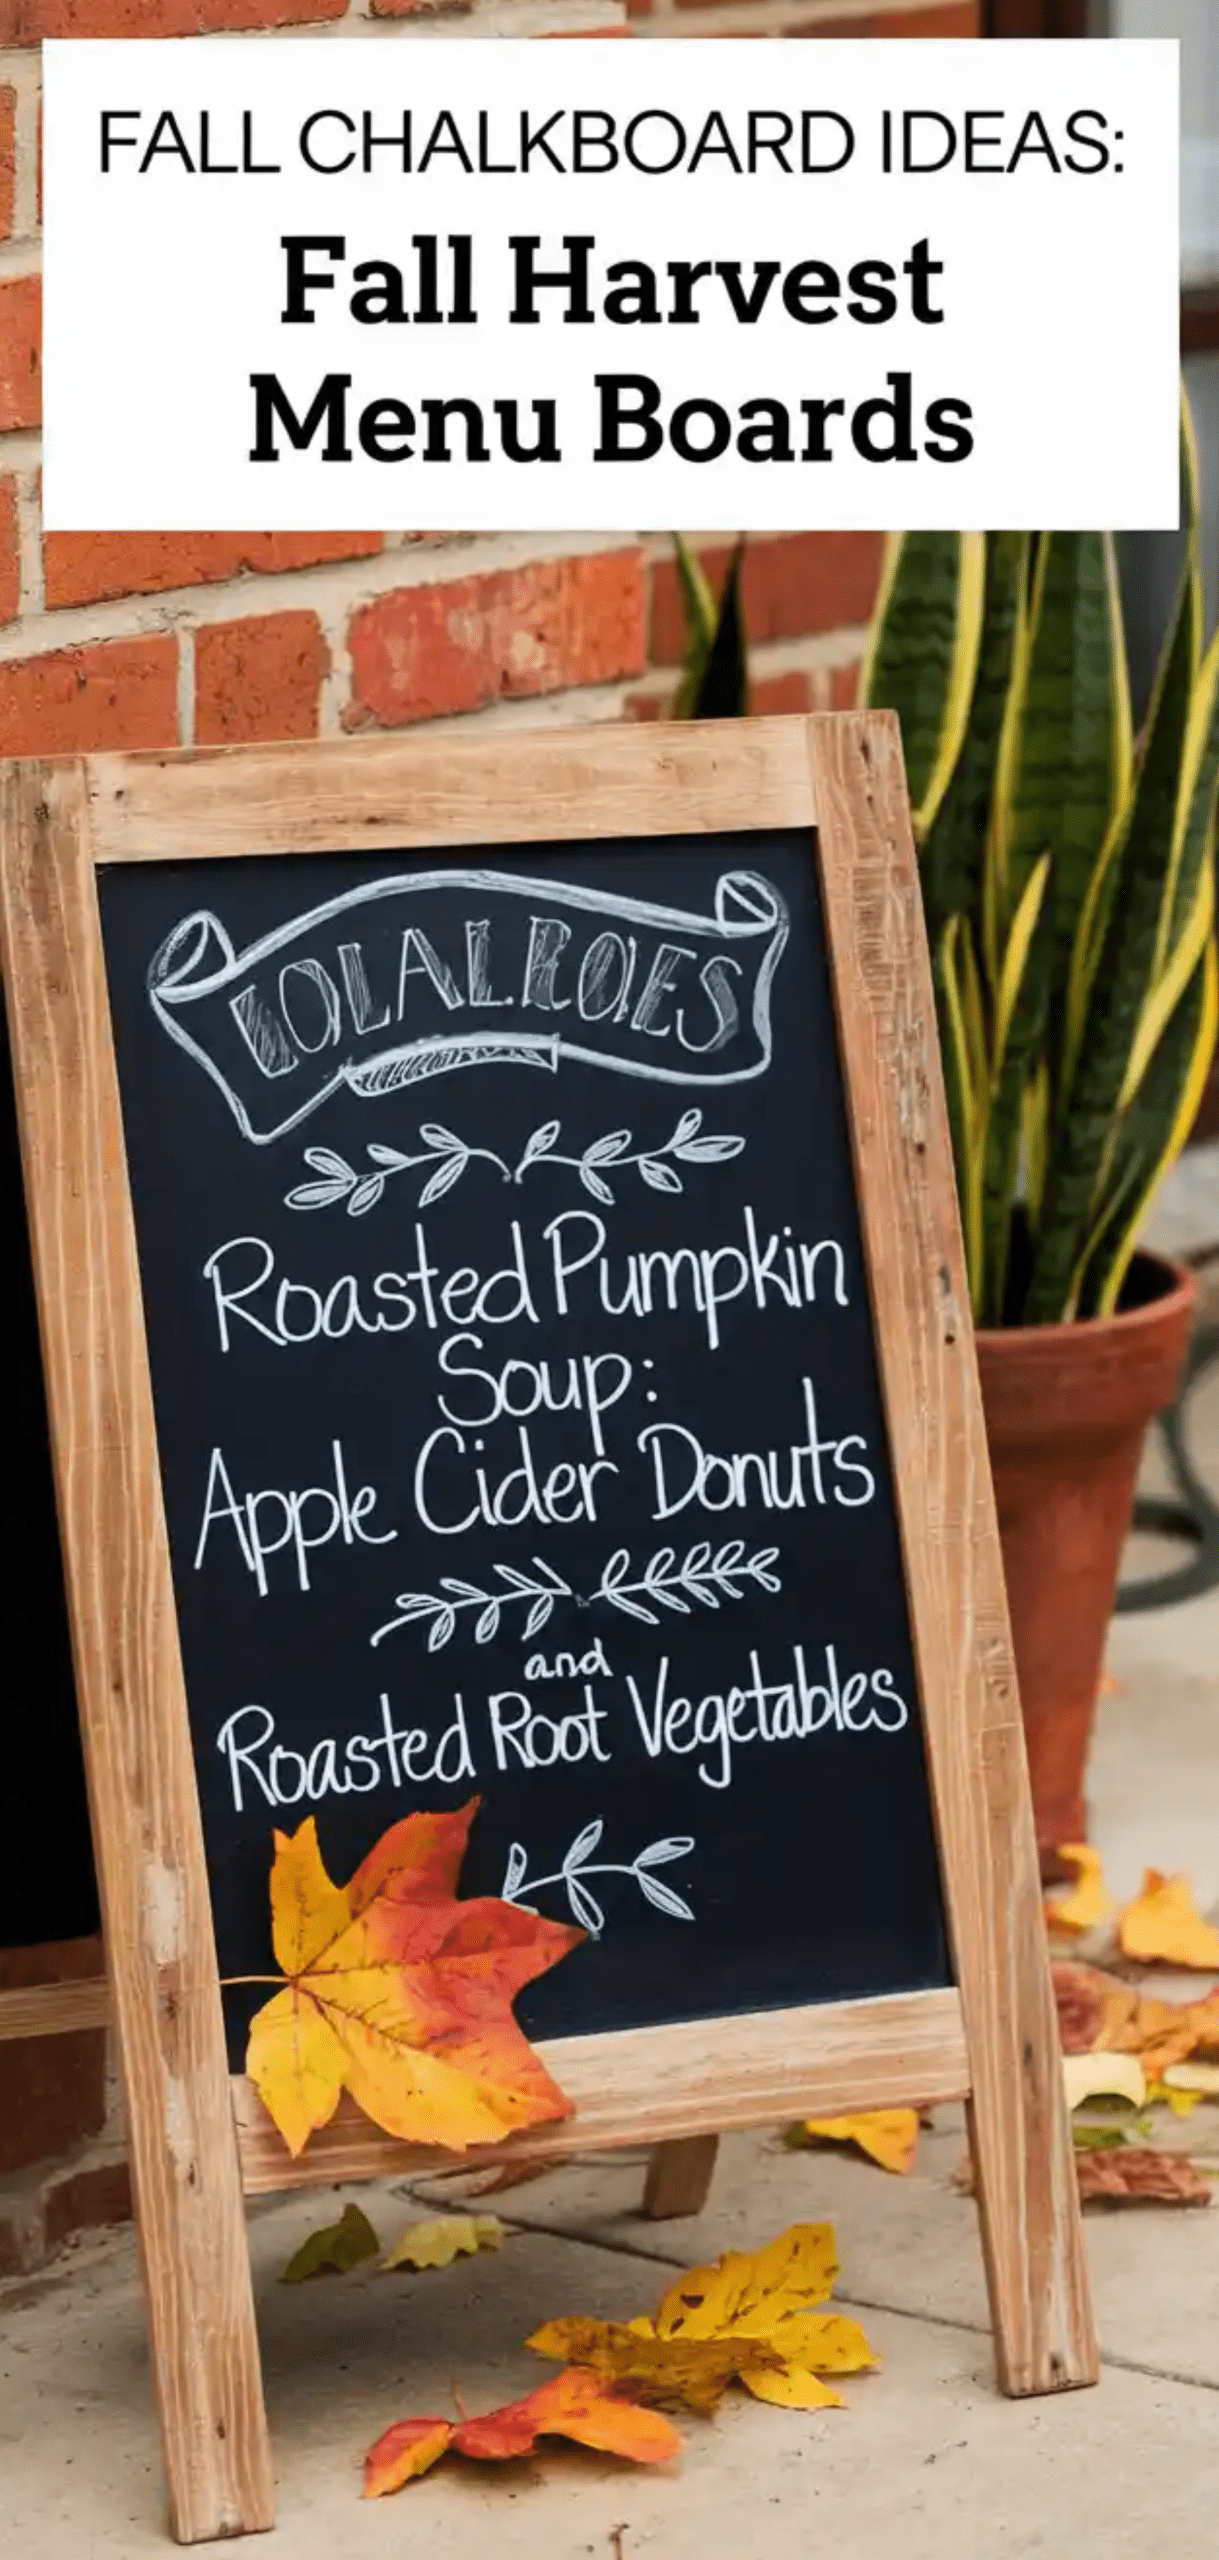 FALL CHALKBOARD IDEAS:
Fall Harvest
Menu Boards
Roasted Pumpkin
Soup:
Apple Cider Donuts
and
Roasted Root Vegetables